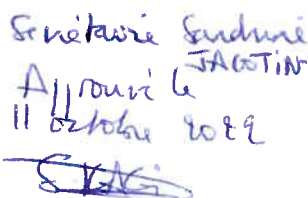 Secrétaire Sandrine
JACOTIN
Approuvé le
11 octobre 2022